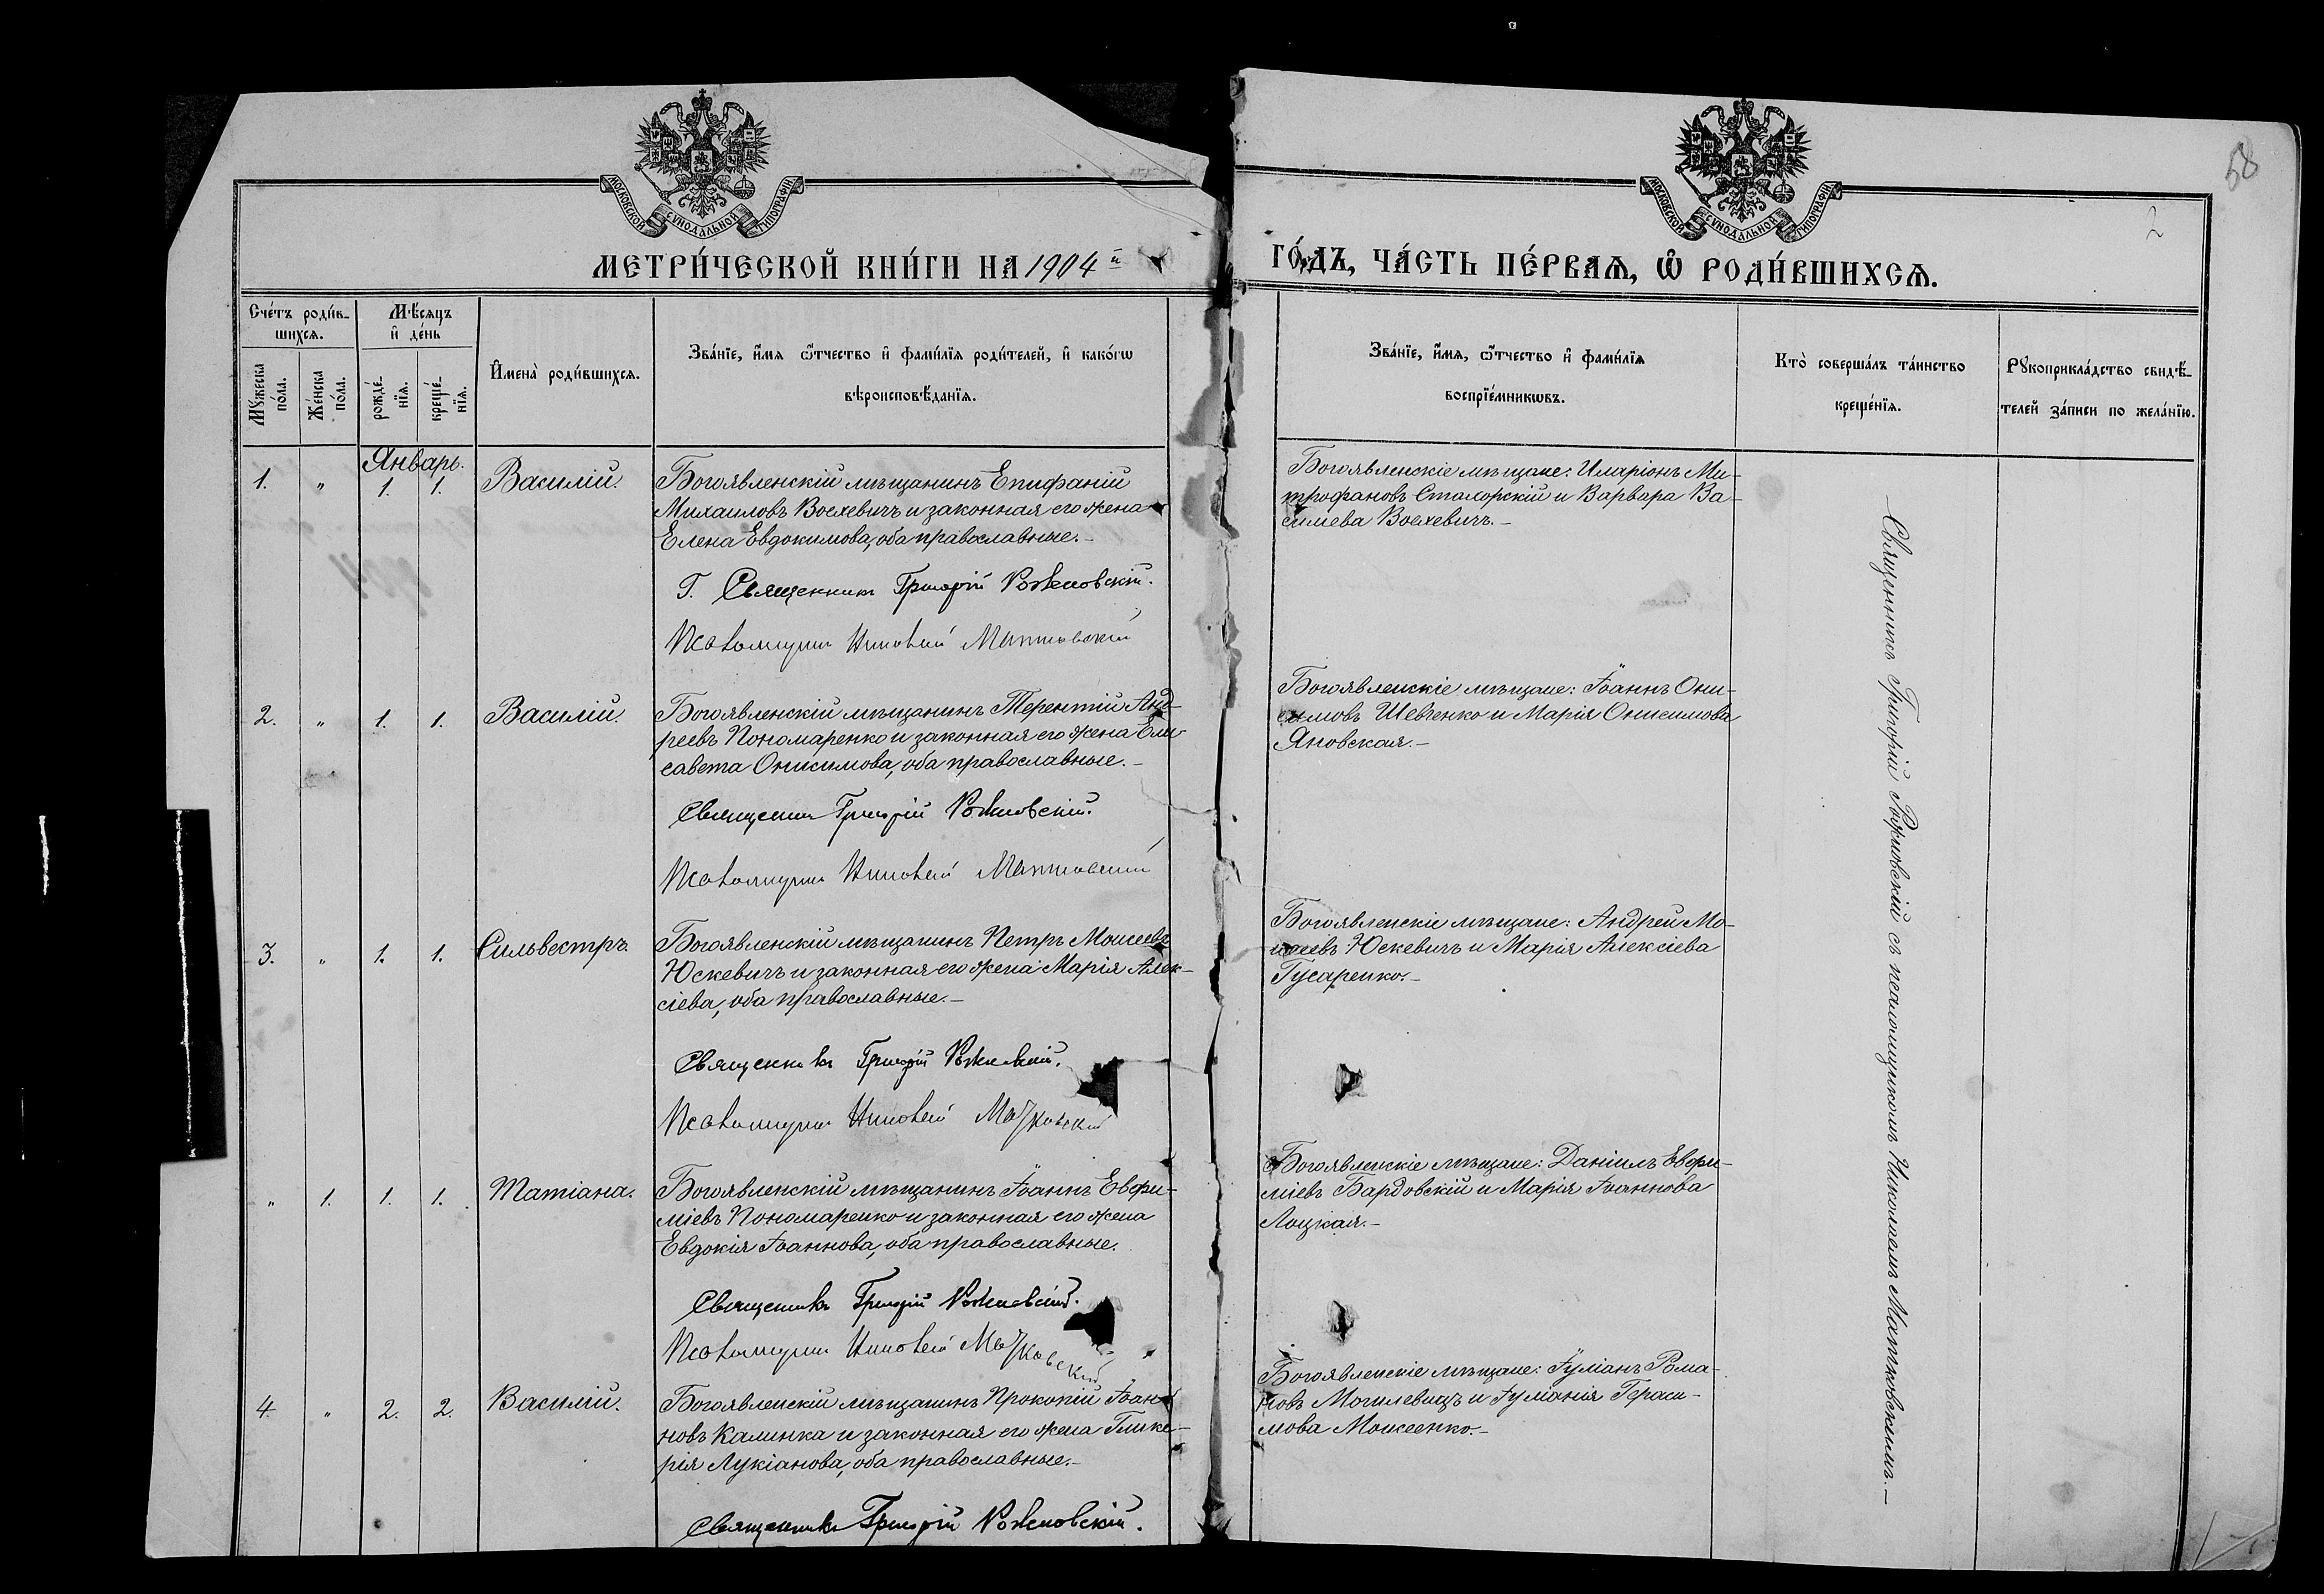 58
2
МОСКОВСКОЙ СѴНОДАЛЬНОЙ ТИПОГРАФІИ
МОСКОВСКОЙ СѴНОДАЛЬНОЙ ТИПОГРАФІИ
МЕТРИ́ЧЕСКОЙ КНИ́ГИ НА 1904 й ГО́ДЪ, ЧА́СТЬ ПЕ́РВАѦ, Ѡ҆ РОДИ́ВШИХСѦ.
Сче́тъ роди́в-
шихсѧ.
Мꙋ́жеска по́ла.
Же́нска по́ла.
Мѣ́сѧцъ
и҆ де́нь
рожде́-нїѧ.
креще́-нїѧ.
И҆мена̀ роди́вшихсѧ.
Зва́нїе, и҆́мѧ ѻ҆́тчество и҆ фами́лїѧ роди́телей, и҆ како́гѡ
вѣроисповѣ́данїѧ.
Зва́нїе, и҆́мѧ, ѻ҆́тчество и҆ фами́лїѧ
воспрїе́мникѡвъ.
Кто̀ соверша́лъ та́инство
креще́нїѧ.
Рꙋкоприкла́дство свидѣ́-
телей за́писи по жела́нїю.
Январь.
1. " 1. 1. Василій.
Богоявленскій мѣщанинъ Епифаній
Михаиловъ Воехевичъ и законная его жена
Елена Евдокимова, оба православные.-
Г. Священникъ Григорій Рожновскій.
Псаломщикъ Николай Матковскій
Богоявленскіе мѣщане: Иларіонъ Ми-
трофановъ Столорскій и Варвара Ва-
силиева Воехевичъ.-
2. " 1. 1. Василій.
Богоявленскій мѣщанинъ Терентій Анд-
реевъ Пономаренко и законная его жена Ели-
савета Онисимова, оба православные.-
Священникъ Григорій Рожновскій.
Псаломщикъ Николай Матковскій
Богоявленскіе мѣщане: Іоаннъ Они-
симовъ Шевченко и Марія Онисимова
Яновская.-
3. " 1. 1. Сильвестръ.
Богоявленскій мѣщанинъ Петръ Моисеевъ
Юскевичъ и законная его жена Марія Алек-
сіева, оба православные.-
Священникъ Григорій Рожновскій.
Псаломщикъ Николай Матковскій
Богоявленскіе мѣщане: Андрей Мо-
исеевъ Юскевичъ и Марія Алексіева
Гусаренко.-
" 1. 1. 1. Татіана.
Богоявленскій мѣщанинъ Іоаннъ Евфи-
міевъ Пономаренко и законная его жена
Евдокія Іоаннова, оба православные.
Священникъ Григорій Рожновскій.
Псаломщикъ Николай Матковскій
Богоявленскіе мѣщане: Даніилъ Евфи-
міевъ Бардовскій и Марія Іоаннова
Лоцкая.-
4. " 2. 2. Василій.
Богоявленскій мѣщанинъ Прокопій Іоан-
новъ Калинка и законная его жена Глике-
рія Лукіанова, оба православные.-
Священникъ Григорій Рожновскій.
Богоявленскіе мѣщане: Іуліанъ Рома-
новъ Могилевицъ и Іуліанія Гераси-
мова Моисеенко.-
Священникъ Григорій Рожновскій съ псаломщикомъ Николаемъ Матковскимъ.-